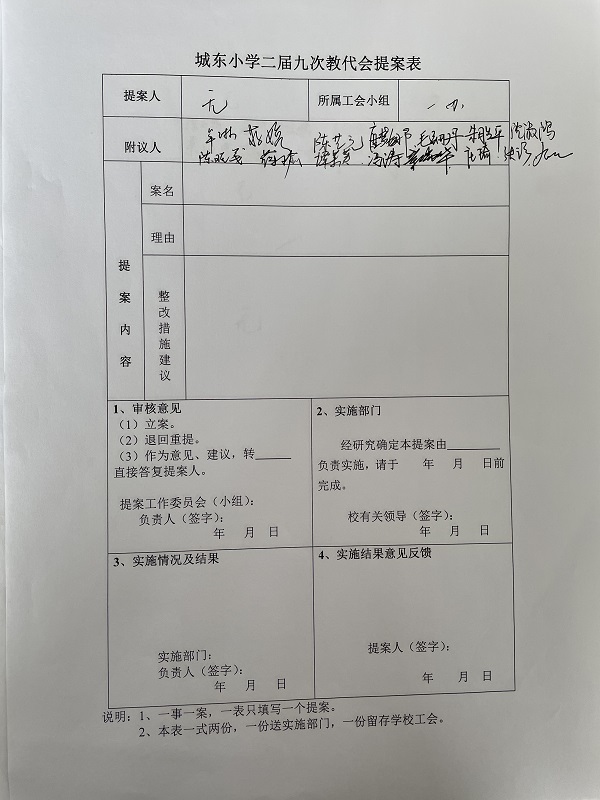 城东小学二届九次教代会提案表
提案人 无 所属工会小组
附议人
案名
理由
提案内容
整改措施建议
1、审核意见
（1）立案。
（2）退回重提。
（3）作为意见、建议，转_____
直接答复提案人。
提案工作委员会（小组）：
负责人（签字）：
年 月 日
2、实施部门
经研究确定本提案由________
负责实施，请于 年 月 日前
完成。
校有关领导（签字）：
年 月 日
3、实施情况及结果
实施部门：
负责人（签字）：
年 月 日
4、实施结果意见反馈
提案人（签字）：
年 月 日
说明：1、一事一案，一表只填写一个提案。
2、本表一式两份，一份送实施部门，一份留存学校工会。